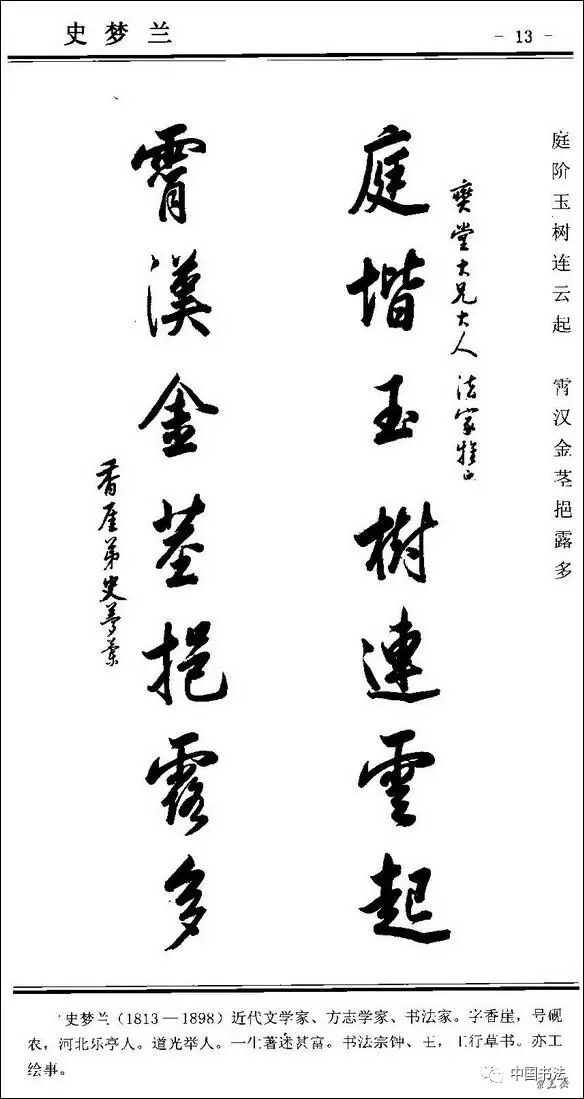 史梦兰
- 13 -
庭阶玉树连云起 霄汉金茎挹露多
奭堂大兄大人 法家雅正
庭堦玉樹連雲起
霄漢金莖挹露多
香厓弟史夢蘭
史梦兰(1813—1898)近代文学家、方志学家、书法家。字香崖,号砚
农,河北乐亭人。道光举人。一生著述甚富。书法宗钟、王,工行草书。亦工
绘事。
中国书法